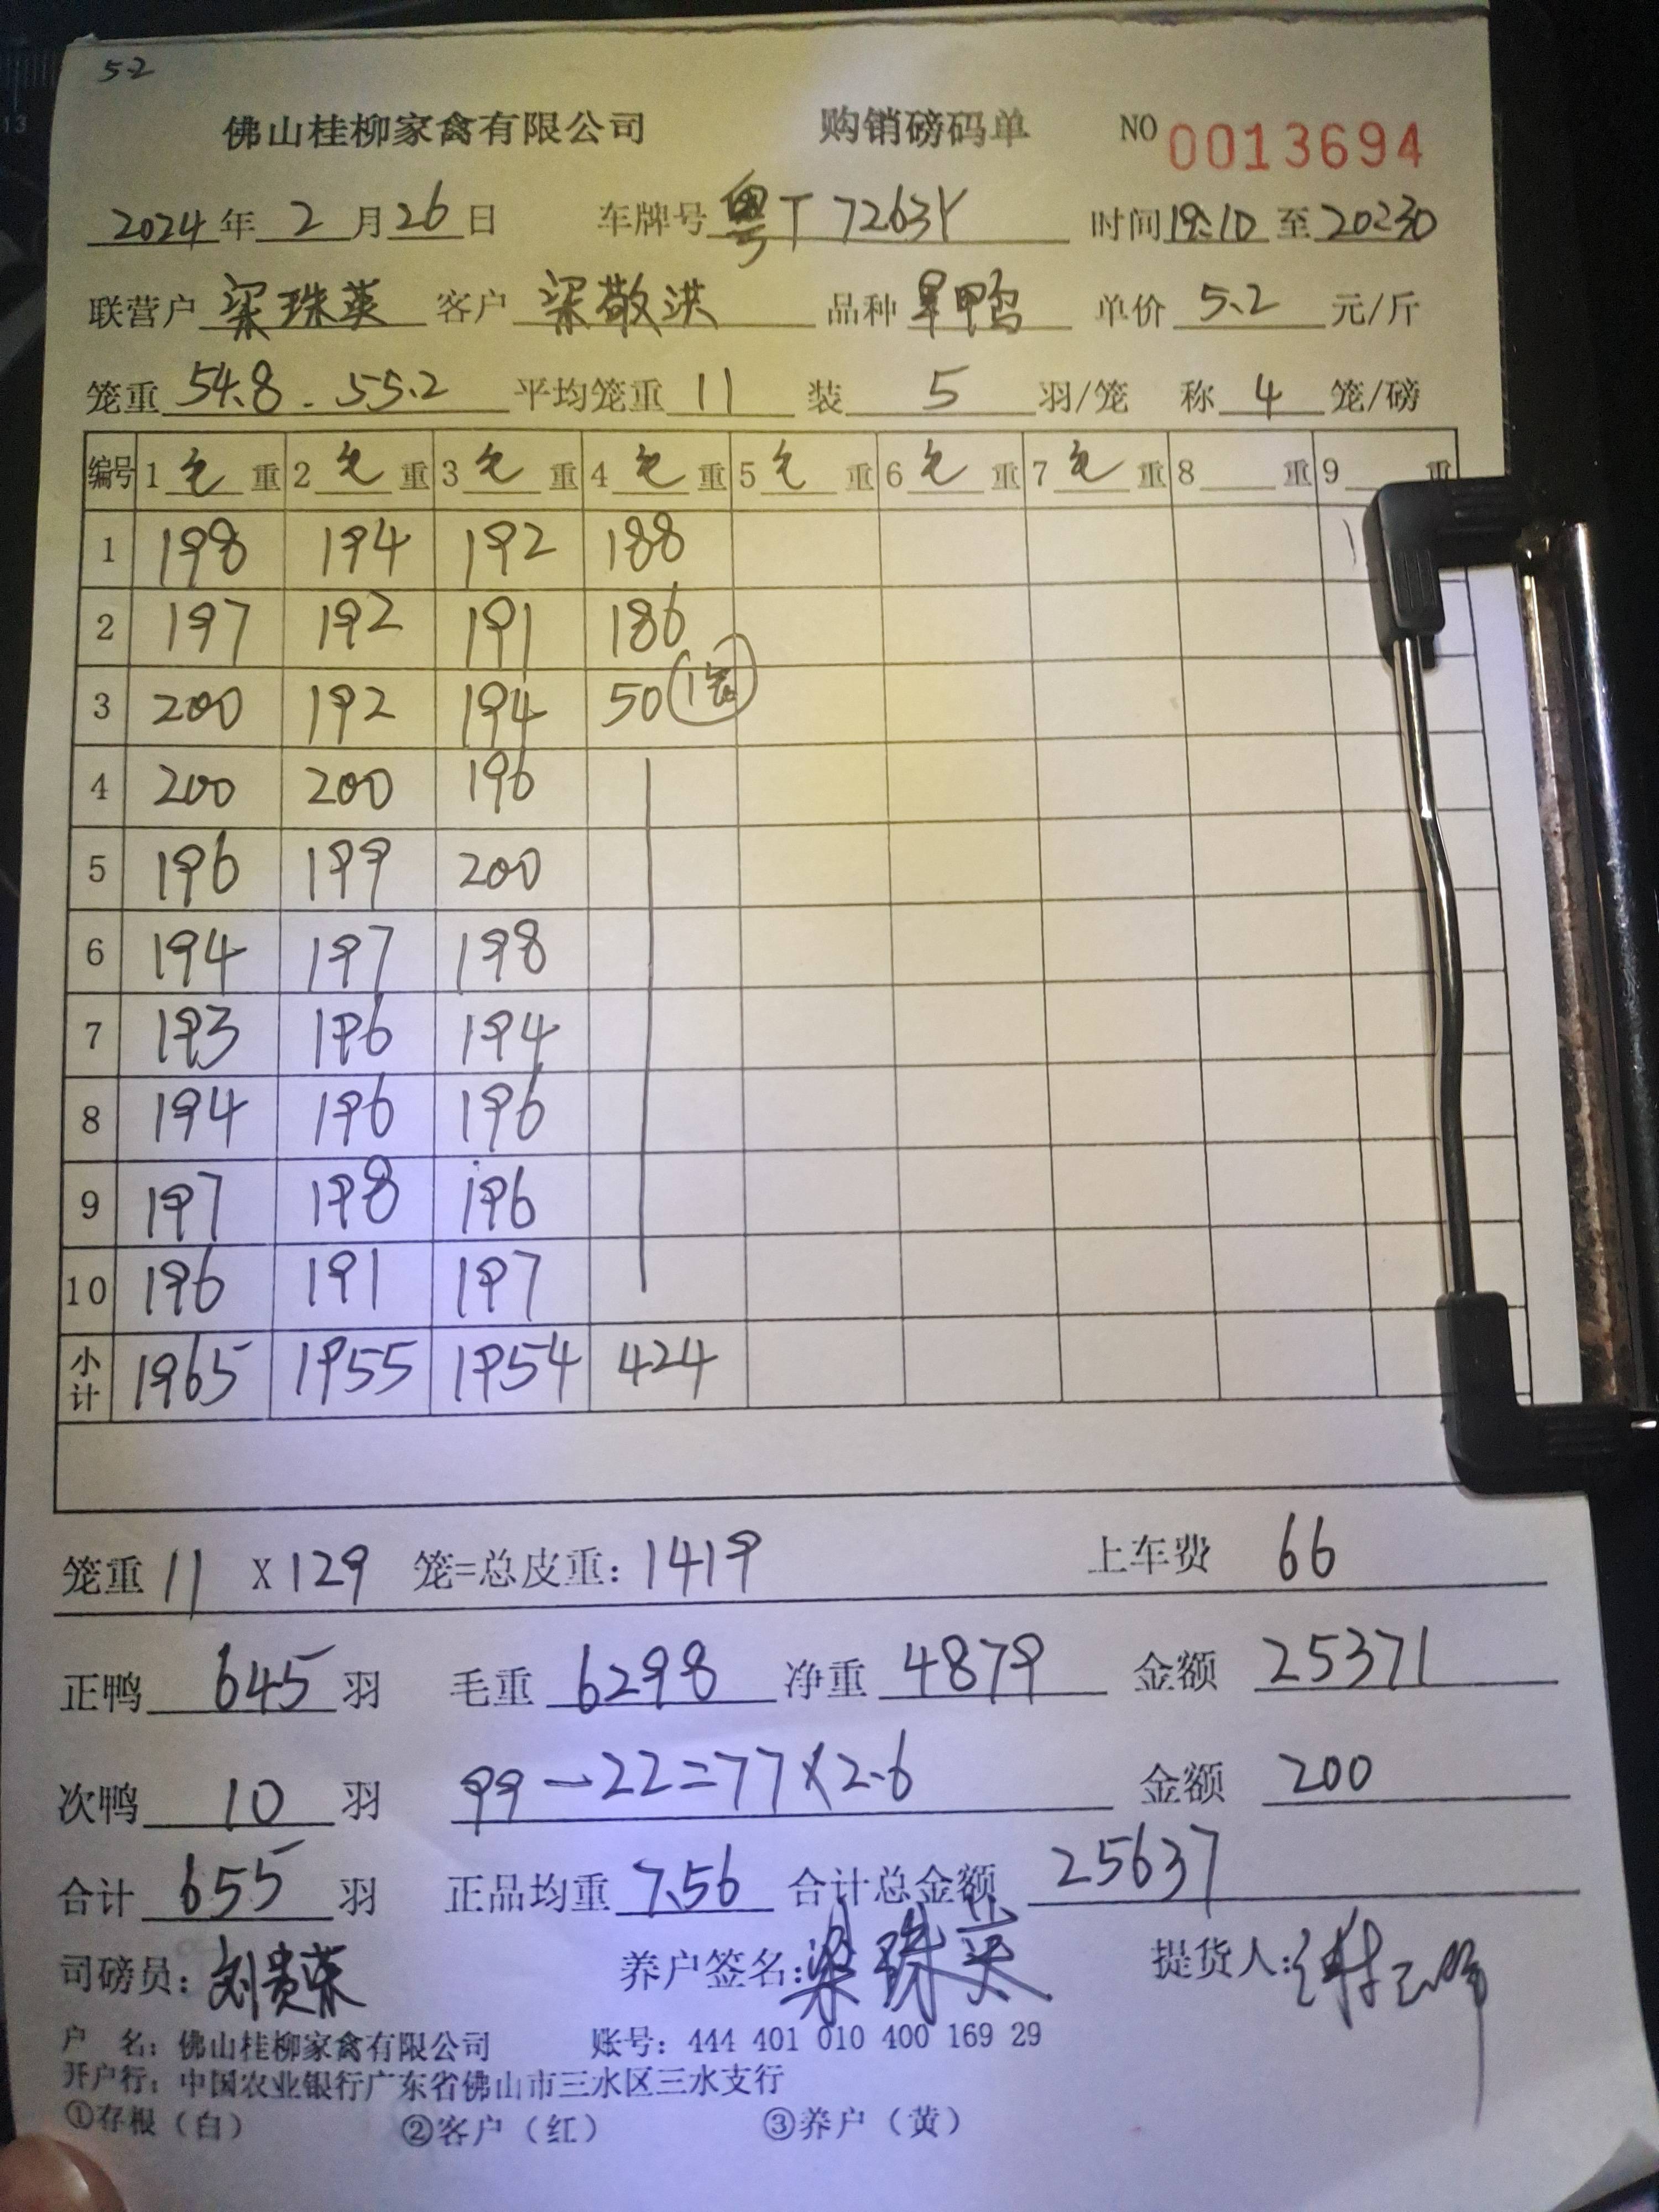 5.2
佛山桂柳家禽有限公司 购销磅码单 NO 0013694
2024年 2 月 26 日 车牌号 粤T 7263Y 时间 19:10 至 20:30
联营户 梁珠英 客户 梁敬洪 品种 旱鸭 单价 5.2 元/斤
笼重 54.8 - 55.2 平均笼重 11 装 5 羽/笼 称 4 笼/磅
编号 1 毛 重 2 毛 重 3 毛 重 4 毛 重 5 毛 重 6 毛 重 7 毛 重 8 重 9 重
1 198 194 192 188
2 197 192 191 186
3 200 192 194 50 (1笼)
4 200 200 196
5 196 199 200
6 194 197 198
7 193 196 194
8 194 196 196
9 197 198 196
10 196 191 197
小计 1965 1955 1954 424
笼重 11 X 129 笼=总皮重: 1419 上车费 66
正鸭 645 羽 毛重 6298 净重 4879 金额 25371
次鸭 10 羽 99-22=77×2.6 金额 200
合计 655 羽 正品均重 7.56 合计总金额 25637
司磅员: 刘贵荣 养户签名: 梁珠英 提货人:
户 名: 佛山桂柳家禽有限公司 账号: 444 401 010 400 169 29
开户行: 中国农业银行广东省佛山市三水区三水支行
①存根（白） ②客户（红） ③养户（黄）